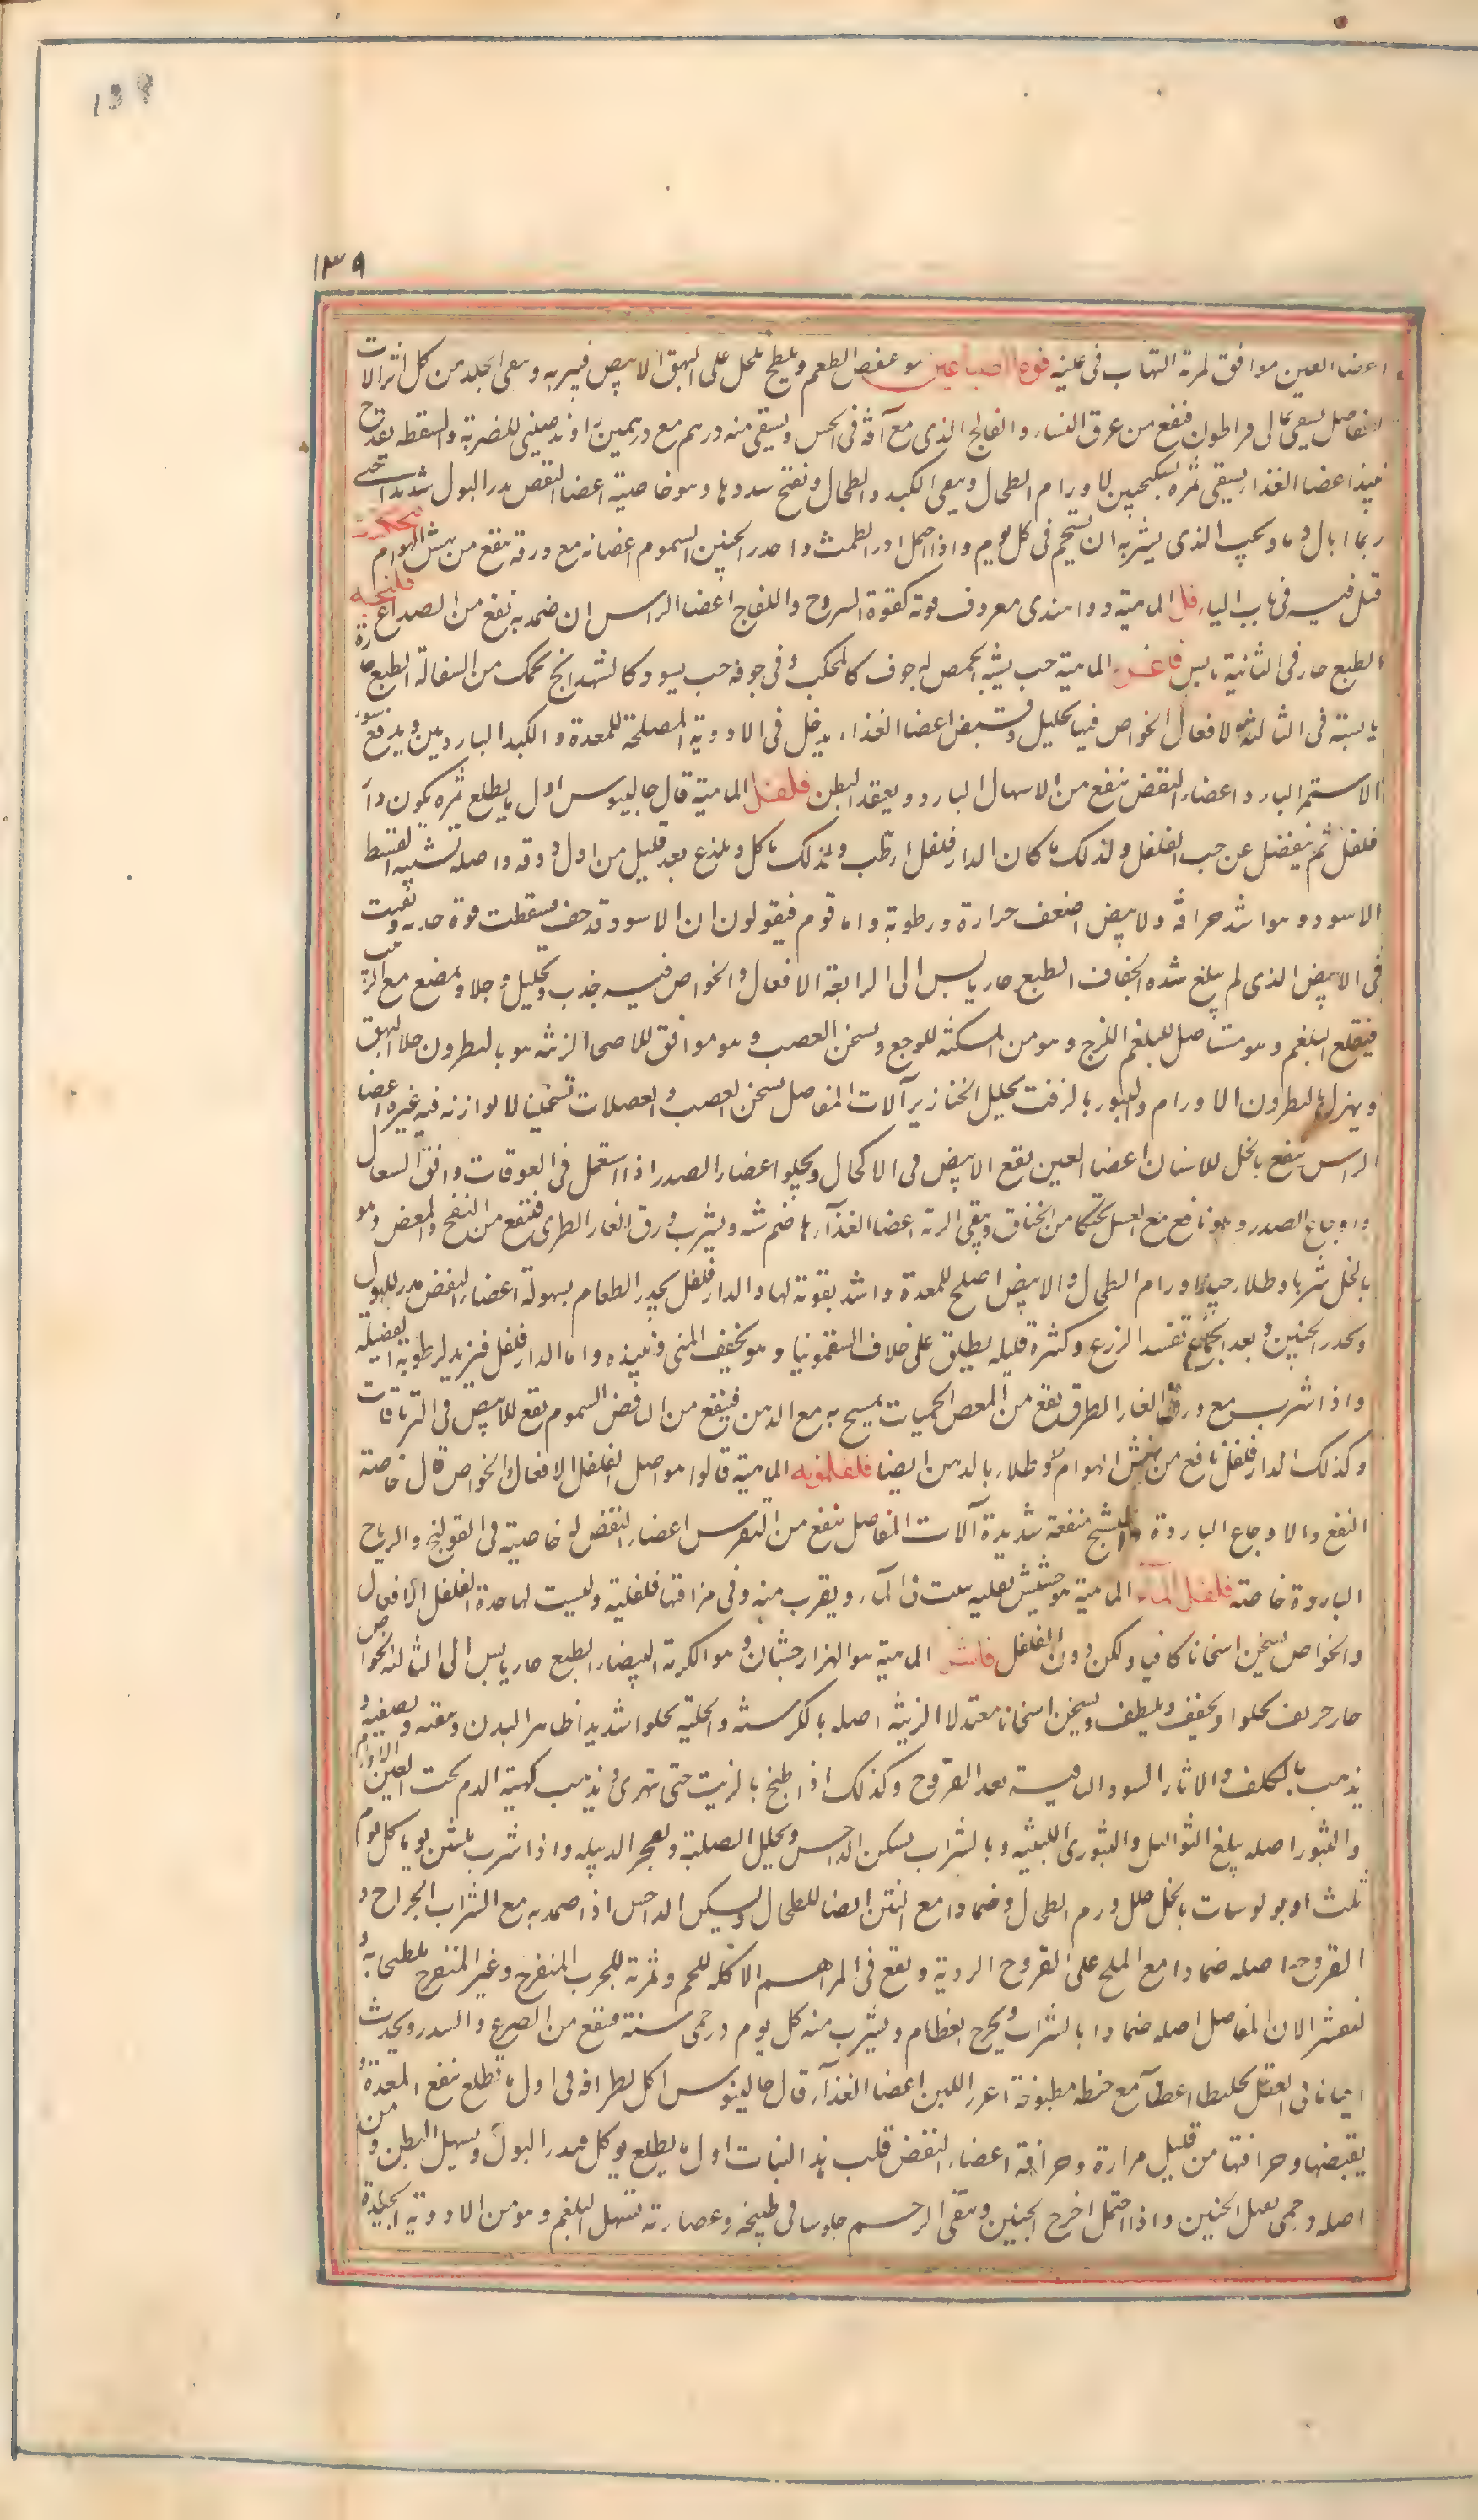 139
١٣٩
اعضا العين موافق لمرة التهاب فى عليه فوه الصباغين هو عفص الطعم ويلطخ بالخل على البهق الابيض فيبريه وينقى الجلد من كل اثر الات
المفاصل يسقى بمالى قراطون فينفع من عرق النساء والفالج الذى مع آفة فى الحس ويسقى منه درهم مع درهمين راوند صينى للضربة والسقطة بقدح
نبيذ اعضا الغذاء يسقى ثمره بسكنجبين لاورام الطحال وينقى الكبد والطحال وتفتح سددها وهو خاصيته اعضا النفض يدر البول شديدا حتى
ربما ابال دما ويجب الذى يشربه ان يستحم فى كل يوم واذا احتمل ادر الطمث واحدر الجنين السموم اغصانه مع ورقه ينفع من نهش الهوام
قيل فيه فى باب الباء فل الماهية دوا هندى معروف قوته كقوة اليبروح واللفاح اعضا الراس ان ضمد به نفع من الصداع فلنجه
الطبع حار فى الثانية يابس الماهية حب يشبه الحمص له جوف كالمحلب وفى جوفه حب يسود كالشهدانج يحمل من السفالة الطبع حارة
يابسة فى الثالثة الافعال والخواص فيها تحليل وقبض اعضا الغذاء يدخل فى الادوية المصلحة للمعدة والكبد الباردين ويدفع سوء
الاستمرا البارد اعضاء النفض ينفع من الاسهال البارد ويعقد البطن فلفل الماهية قال جالينوس اول ما يطلع ثمره يكون دار
فلفل ثم ينفصل عن حب الفلفل ولذلك ما كان الدار فلفل ارطب ولذلك يتاكل ويلذع بعد قليل من اول ذوقه واصله تشبيه القسط
الاسود وهو اشد حرافة والابيض اضعف حرارة ورطوبة واما قوم فيقولون ان الاسود قد جف فسقطت قوة حدته وبقيت
فى الابيض الذى لم يبلغ شدة الجفاف الطبع حار يابس الى الرابعة الافعال والخواص فيه جذب وتحليل وجلا ويمضغ مع الزبيب
فيقلع البلغم وهو مستاصل للبلغم اللزج وهو من المسكنة للوجع ويسخن العصب وهو موافق للاصحا الزينة هو بالنطرون جلا البهق
ويهزل بالنطرون الاورام والبثور بالزفت يحلل الخنازير آلات المفاصل يسخن العصب والعضلات تسخينا لا يوازنه فيه غيره اعضا
الراس ينفع بالخل للاسنان اعضا العين يقع الابيض فى الاكحال ويجلو اعضاء الصدر اذا استعمل فى اللعوقات وافق السعال
واوجاع الصدر وهو نافع مع العسل تحنكا من الخناق وينقى الرية اعضا الغذاء هاضم مشه ويشرب ورق الغار الطرى فينفع من النفخ والمغص وهو
بالخل شربا وطلاء جيد لاورام الطحال والابيض اصلح للمعدة واشد تقوية لها والدار فلفل يحدر الطعام بسهولة اعضاء النفض مدر للبول
ويحدر الجنين وبعد الجماع تفسد الزرع وكثرة قليله يطلق على خلاف السقمونيا وهو تجفيف المنى وتبيذه واما الدار فلفل فيزيد لرطوبته الفضيلة
واذا شرب مع ورق الغار الطرى نفع من المغص الحميات يمسح به مع الدهن فينفع من النافض السموم يقع الابيض فى الترياقات
وكذلك الدار فلفل نافع من نهش الهوام وطلاء بالدهن ايضا فلفلمويه الماهية قالوا هو اصل الفلفل الافعال والخواص قال خاصته
النفع والاوجاع الباردة والتشنج منفعة شديدة آلات المفاصل ينفع من النقرس اعضاء النفض له خاصية فى القولنج والرياح
الباردة خاصة فلفل الماء الماهية هو حشيش بقلية ينبت فى الماء ويقرب منه وفى مذاقتها فلفلية وليست لها حدة الفلفل الافعال
والخواص يسخن اسخانا كافيا ولكن دون الفلفل فاشرا الماهية هو الهزار جشان وهو الكرمة البيضاء الطبع حار يابس الى الثالثة الخواص
حار حريف يجلوا ويجفف ويلطف ويسخن اسخانا معتدلا الزينة اصله بالكرسنه والحلبة يجلوا شديدا ظاهر البدن وينقيه ويصفيه و
يذهب بالكلف والاثار السود الباقية بعد القروح وكذلك اذا طبخ بالزيت حتى تهرى ويذهب كهبة الدم تحت العين الاورام
والبثور اصله يبلغ الثواليل والبثورى اللبنية وبالشراب يسكن الداحس ويحلل الصلبة ويفجر الدبيله واذا شرب بلثين يوما كل يوم
ثلث اوبولوسات بالخل حلل ورم الطحال وضمادا مع التين ايضا للطحال ويسكن الداحس اذا ضمد به مع الشراب الجراح و
القروح اصله ضمادا مع الملح على القروح الردية ويقع فى المراهم الاكله للحم وثمرته للجرب المتقرح وغير المتقرح يلطخا به و
لتقشر الات المفاصل اصله ضمادا بالشراب ويخرج العظام ويشرب منه كل يوم درخمى سنة فينفع من الصرع والسدر ويحدث
احيانا فى العقل تخليطا اعطاء مع حنطة مطبوخة اغزر اللبن اعضا الغذاء قال جالينوس اكل اطرافه فى اول ما تطلع نفع المعدة و
بقبضها وحرافتها من قليل مرارة وحرافة اعضاء النفض قلب هذا النبات اول ما يطلع يوكل فيدر البول ويسهل البطن ومن
اصله درخمى يقتل الجنين واذا احتمل اخرج الجنين وينقى الرحم جلوسا فى طبيخه وعصارته تسهل البلغم وهو من الادوية الجيدة